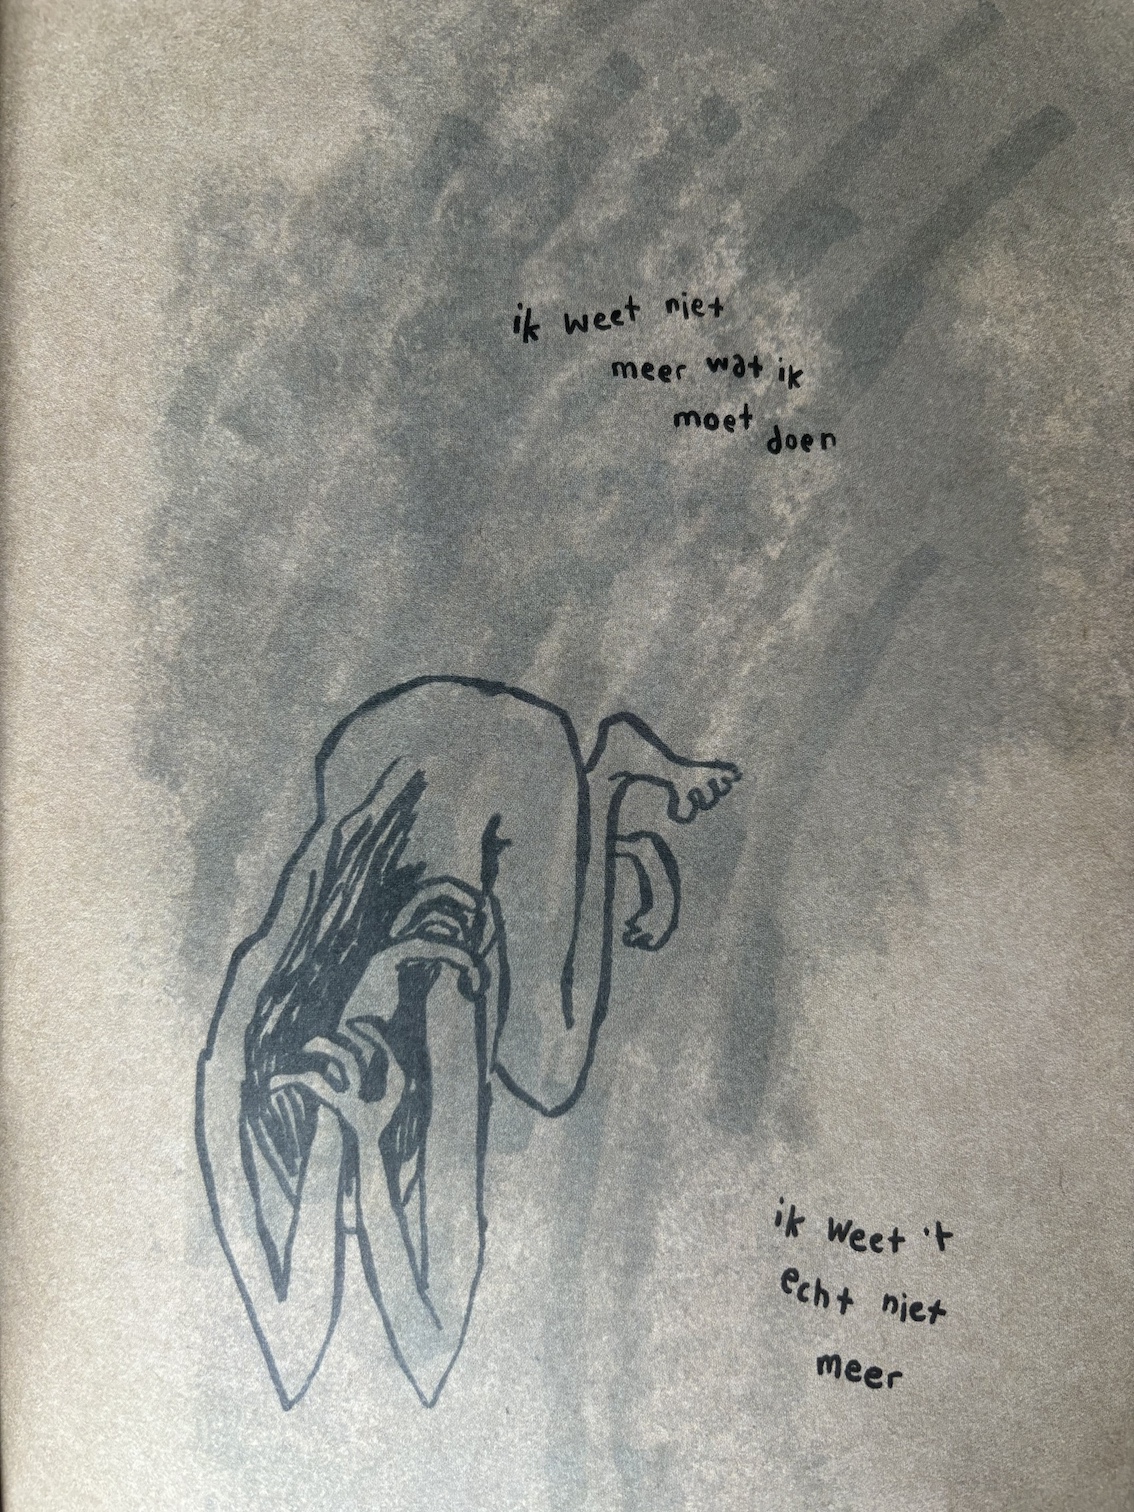 ik weet niet
meer wat ik
moet doen
ik weet 't
echt niet
meer